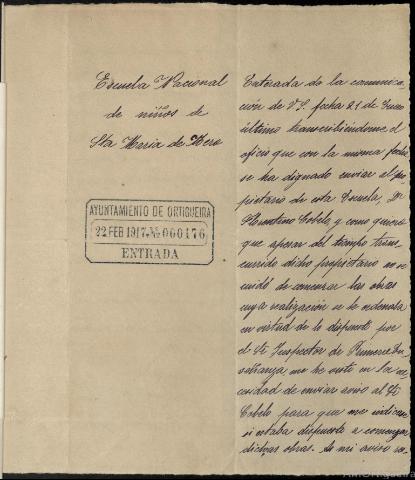 Escuela Nacional
de niños de
Sta Maria de Mera
AYUNTAMIENTO DE ORTIGUEIRA
22 FEB 1917 Nº 000176
ENTRADA
Enterada de la comunica-
ción de V.S. fecha 21 de Enero
último transcribiéndome el
oficio que con la misma fecha
se ha dignado enviar el pro-
pietario de esta Escuela, Dn
Florentino Cobelo, y como quiera
que apesar del tiempo trans-
currido dicho propietario no se
cuidó de comenzar las obras
cuya realización se le ordenaba
en virtud de lo dispuesto por
el Sr Inspector de Primera En-
señanza, me he visto en la ne-
cesidad de enviar aviso al Sr
Cobelo para que me indicase
si estaba dispuesto a comenzar
dichas obras. A mi aviso